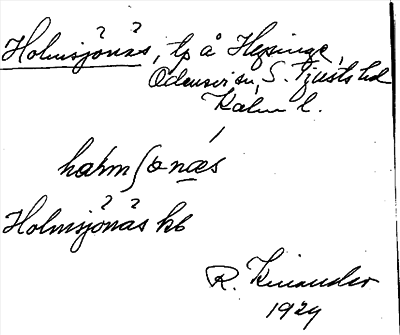 Holmsjönäs, tp å Hepinge,
Odensvi sn, S. Tjusts hd
Kalm l.
holmʃønæs
Holmsjönäs kb
R. Kinander
1929